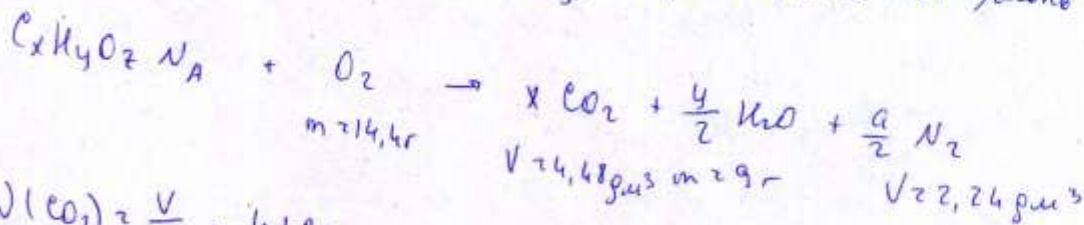 CxHyOz NA + O2 → x CO2 + y/2 H2O + a/2 N2
m = 14,4г V = 4,48 дм³ m = 9 г V = 2,24 дм³
ν(CO2) = V